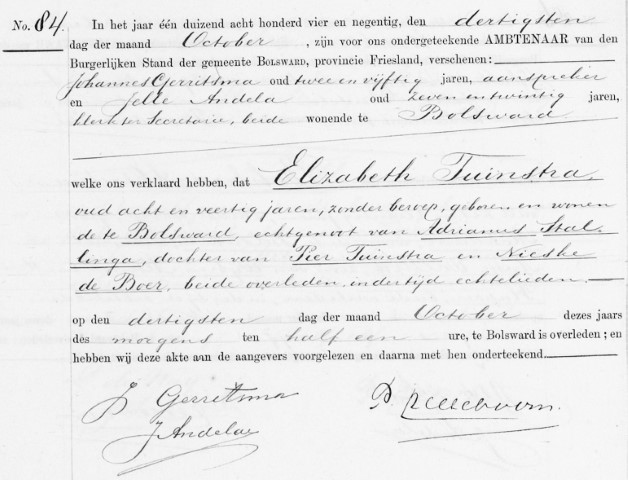 No. 84.
In het jaar één duizend acht honderd vier en negentig, den dertigsten
dag der maand October, zijn voor ons ondergeteekende AMBTENAAR van den
Burgerlijken Stand der gemeente BOLSWARD, provincie Friesland, verschenen:
Johannes Gerritsma oud twee en vijftig jaren, aanspreker
en Jelle Andela oud zeven en twintig jaren,
klerk ter Secretarie, beide wonende te Bolsward
welke ons verklaard hebben, dat Elizabeth Tuinstra,
oud acht en veertig jaren, zonder beroep, geboren en wonen
de te Bolsward, echtgenoot van Adrianus Stal
linga, dochter van Pier Tuinstra en Nieske
de Boer, beide overleden, indertijd echtelieden.
op den dertigsten dag der maand October dezes jaars
des morgens ten half een ure, te Bolsward is overleden; en
hebben wij deze akte aan de aangevers voorgelezen en daarna met hen onderteekend.
J Gerritsma
J Andela